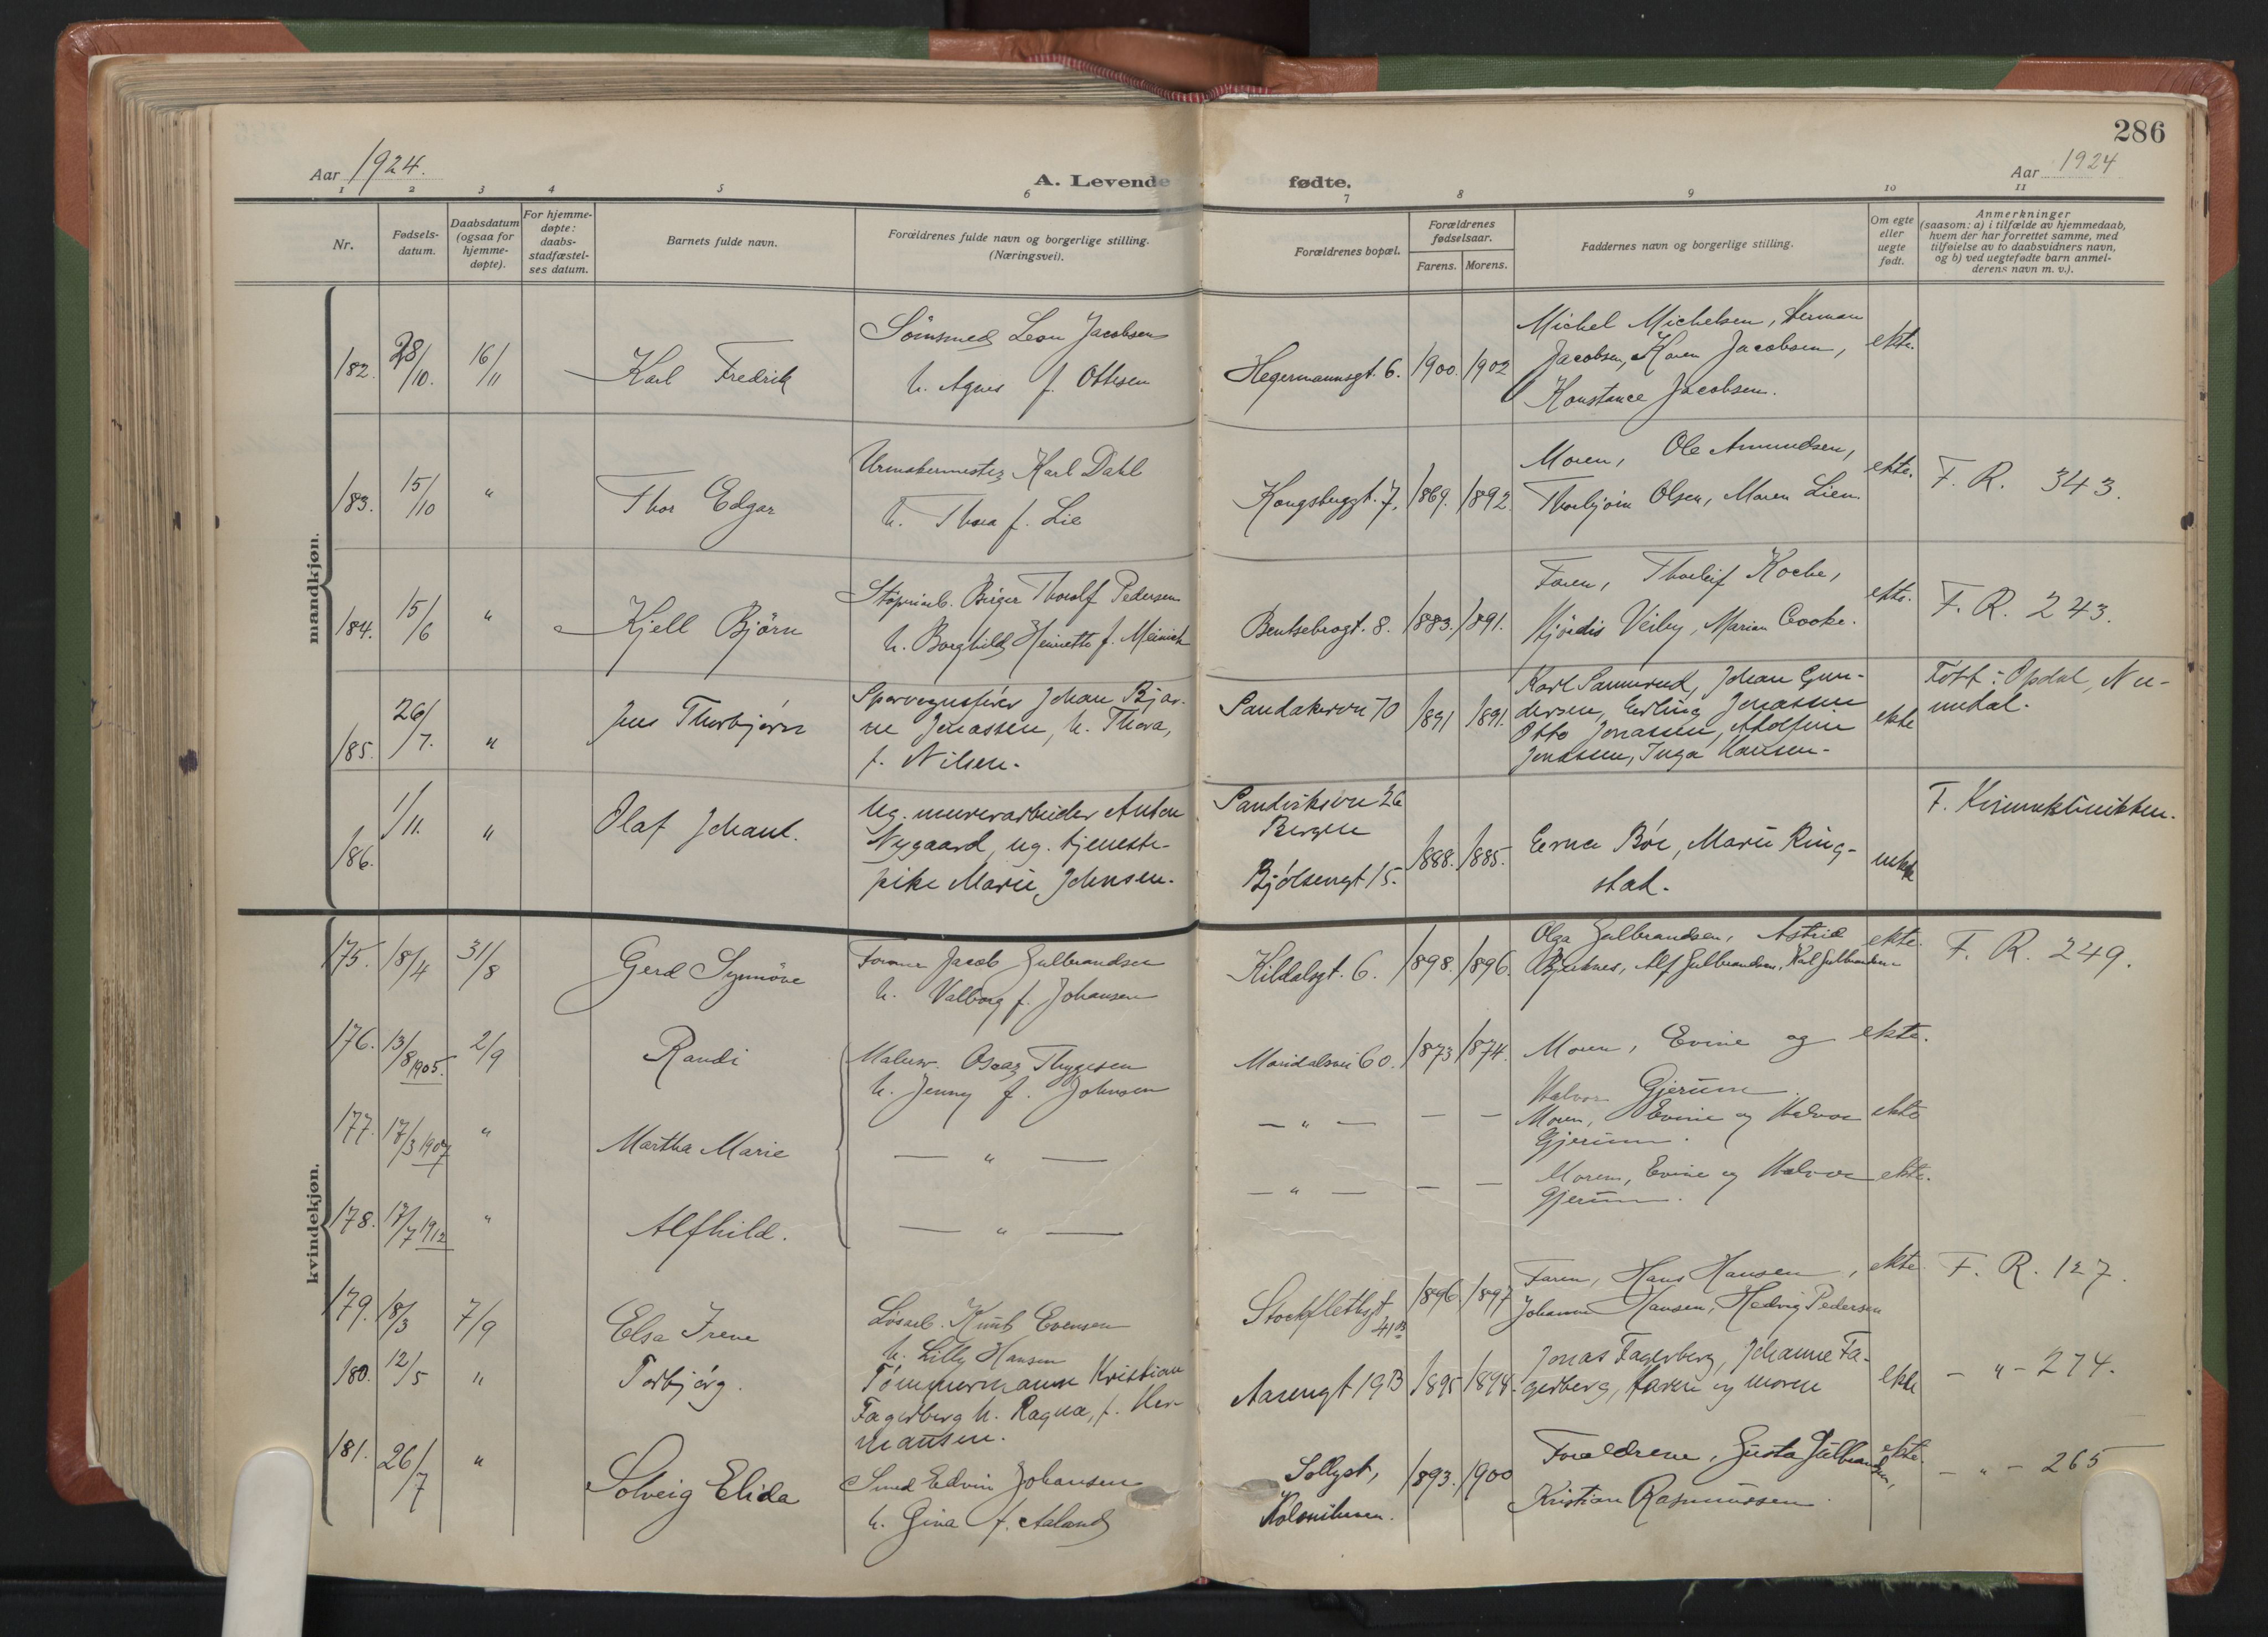 286
Aar 1924.
A. Levende fødte.
Aar 1924
1 2 3 4 5 6 7 8 9 10 11
Nr.
Fødsels-
datum.
Daabsdatum
(ogsaa for
hjemme-
døpte).
For hjemme-
døpte:
daabs-
stadfæstel-
ses datum.
Barnets fulde navn.
Forældrenes fulde navn og borgerlige stilling.
(Næringsvei).
Forældrenes bopæl.
Forældrenes
fødselsaar.
Farens. Morens.
Faddernes navn og borgerlige stilling.
Om egte
eller
uegte
født.
Anmerkninger
(saasom: a) i tilfælde av hjemmedaab,
hvem der har forrettet samme, med
tilføielse av to daabsvidners navn,
og b) ved uegtefødte barn anmel-
derens navn m. v.).
mandkjøn.
182. 28/10. 16/11 Karl Fredrik
Sömsmed Leon Jacobsen
h. Agnes f. Ottesen
Hegermannsgt. 6. 1900. 1902
Michel Michelsen, Herman
Jacobsen, Karen Jacobsen,
Konstance Jacobsen.
ekte.
183. 15/10 " Thor Edgar
Urmakermester Karl Dahl
h. Thora f. Lie
Kongsberggt. 7. 1869. 1892.
Moren, Ole Amundsen,
Thorbjörn Olsen, Maren Lien
ekte.
F. R. 343.
184. 15/6 " Kjell Björn
Støperiarb. Birger Thorolf Pedersen
h. Borghild Henriette f. Meinich
Bentsebrogt. 8. 1883. 1891.
Faren, Thorleif Koche,
Hjördis Veiby, Marian Cooke.
ekte.
F. R. 243.
185. 26/7. " Jens Thorbjørn
Sporvognsfører Johan Bjar-
ne Jonassen, h. Thora,
f. Nilsen.
Sandakervn 70 1891 1891.
Karl Sannerud, Johan Gun-
dersen, Erling Jonassen
Otto Jonassen, Adolfine
Jonassen, Inga Hansen-
ekte
Født i Opdal, Nu-
medal.
186. 1/11. " Olaf Johant.
Ug. murerarbeider Anton
Nygaard, ug. tjeneste-
pike Marie Johnsen.
Sandviksvn 26
Bergen
Bjølsengt 15. 1888. 1885.
Erna Bøe, Marie Ring-
stad.
uekte
F. Kvinneklinikken.
kvindekjøn.
175. 18/4 31/8 Gerd Synnöve
Former Jacob Gulbrandsen
h. Valborg f. Johansen
Kildalsgt. 6. 1898. 1896.
Olga Gulbrandsen, Astrid
Bjerknes, Alf Gulbrandsen, Karl Gulbrandsen
ekte.
F. R. 249.
176. 13/8 1905. 2/9 Randi
Malerm. Oscar Thygesen
h. Jenny f. Johnsen
Maridalsvei 60. 1873 1874.
Moren, Evine og
Halvor Gjerum
ekte.
177. 17/3 1907 " Martha Marie
— " —
— " — — —
Moren, Evine og Halvor
Gjerum.
ekte
178. 17/7 1912 " Alfhild.
— " —
— " — — —
Moren, Evine og Halvor
Gjerum.
ekte.
179. 18/3 7/9 Elsa Irene
Løsarb. Knut Evensen
h. Lilly Hansen
Stockflethsgt 41 B 1896. 1897
Faren, Hans Hansen,
Johanna Hansen, Hedvig Pedersen
ekte
F. R. 127.
180. 12/5 " Torbjørg.
Tømmermann Kristian
Fagerberg h. Ragna, f. Her-
mansen.
Aasengt 19 B 1895 1894.
Jonas Fagerberg, Johanne Fa-
gerberg, faren og moren
ekte
- " - 274.
181. 26/7 " Solveig Elida
Smed Edvin Johansen
h. Gina f. Aaland
Sollyst,
Kolonihaven. 1893. 1900
Forældrene, Gusta Gulbrandsen,
Kristian Rasmussen.
ekte.
- " - 265